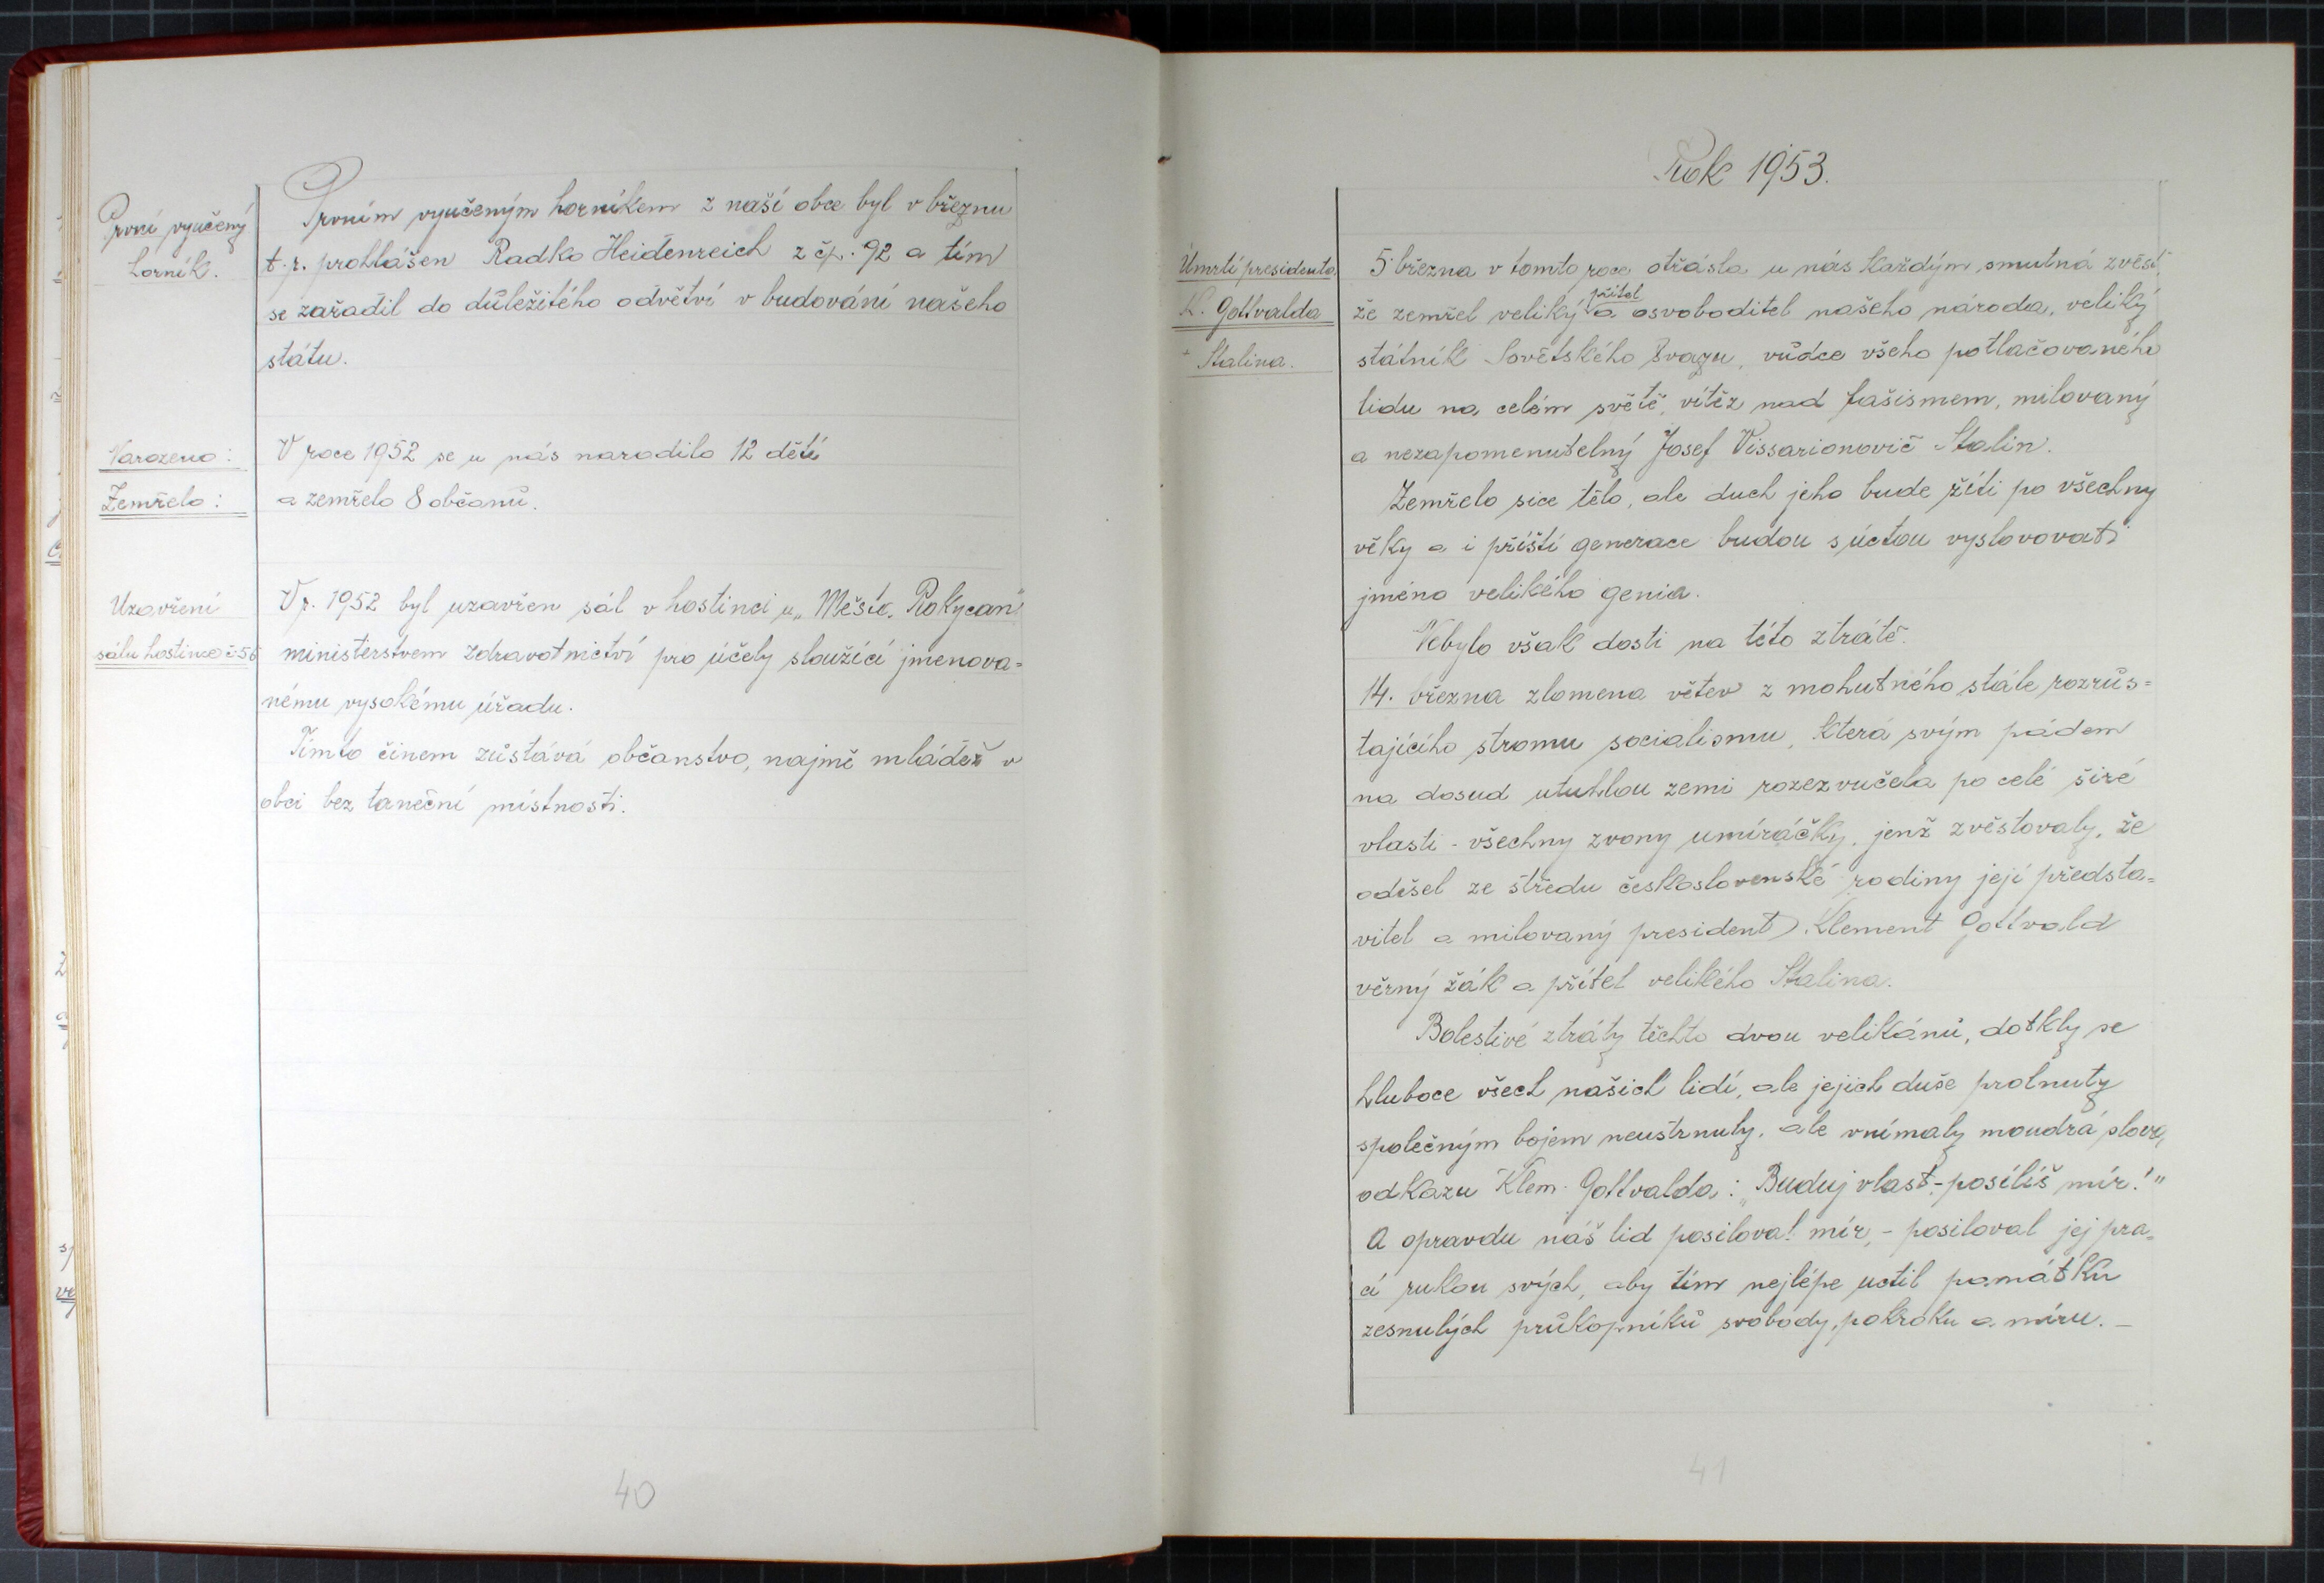 První vyučený
horník.
Prvním vyučeným horníkem z naší obce byl v březnu
t.r. prohlášen Radko Heidenreich z čp. 92 a tím
se zařadil do důležitého odvětví v budování našeho
státu.
Narozeno:
Zemřelo:
V roce 1952 se u nás narodilo 12 dětí
a zemřelo 8 občanů.
Uzavření
sálu hostince č 56
V r. 1952 byl uzavřen sál v hostinci u „Měšťa. Rokycan"
ministerstvem zdravotnictví pro účely sloužící jmenova=
nému vysokému úřadu.
Tímto činem zůstává občanstvo, najmě mládež v
obci bez taneční místnosti.
40
Rok 1953.
Úmrtí presidenta
K. Gottvalda
+ Stalina.
5. března v tomto roce otřásla u nás každým smutná zvěst,
přítel
že zemřel veliký a osvoboditel našeho národa, veliký
státník Sovětského Svazu, vůdce všeho potlačovaného
lidu na celém světě, vítěz nad fašismem, milovaný
a nezapomenutelný Josef Vissarionovič Stalin.
Zemřelo sice tělo, ale duch jeho bude žíti po všechny
věky a i příští generace budou s úctou vyslovovati
jméno velikého genia.
Nebylo však dosti na této ztrátě.
14. března zlomena větev z mohutného, stále rozrůs=
tajícího stromu socialismu, která svým pádem
na dosud utuhlou zemi rozezvučela po celé širé
vlasti - všechny zvony umíráčky, jenž zvěstovaly, že
odešel ze středu československé rodiny její předsta=
vitel a milovaný president Klement Gottvald
věrný žák a přítel velikého Stalina.
Bolestivé ztráty těchto dvou velikánů, dotkly se
hluboce všech našich lidí, ale jejich duše prolnuty
společným bojem neustrnuly, ale vnímaly moudrá slova
odkazu Klem. Gottvalda: „Buduj vlast, - posílíš mír!"
A opravdu náš lid posiloval mír, - posiloval jej pra=
cí rukou svých, aby tím nejlépe uctil památku
zesnulých průkopníků svobody, pokroku a míru. -
41